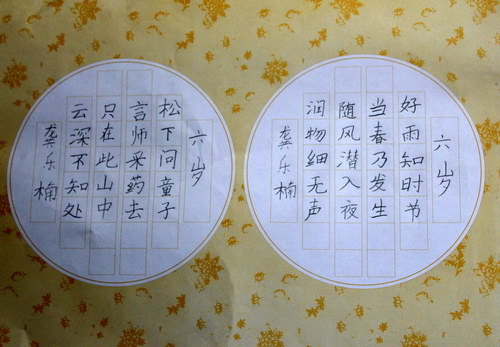 六岁
好雨知时节
当春乃发生
随风潜入夜
润物细无声
龚乐楠
六岁
松下问童子
言师采药去
只在此山中
云深不知处
龚乐楠